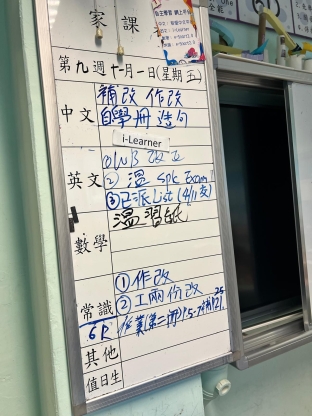 家課
第九週 十一月一日(星期五)
中文
補改 作改
自學冊 造句
i-Learner
英文
OWB 改正
② 溫 Spk Exam
③已派List (4/11交)
數學
溫習紙
常識
①作改
②工兩份改
6P
作業(第二冊)P.5-
其他
值日生